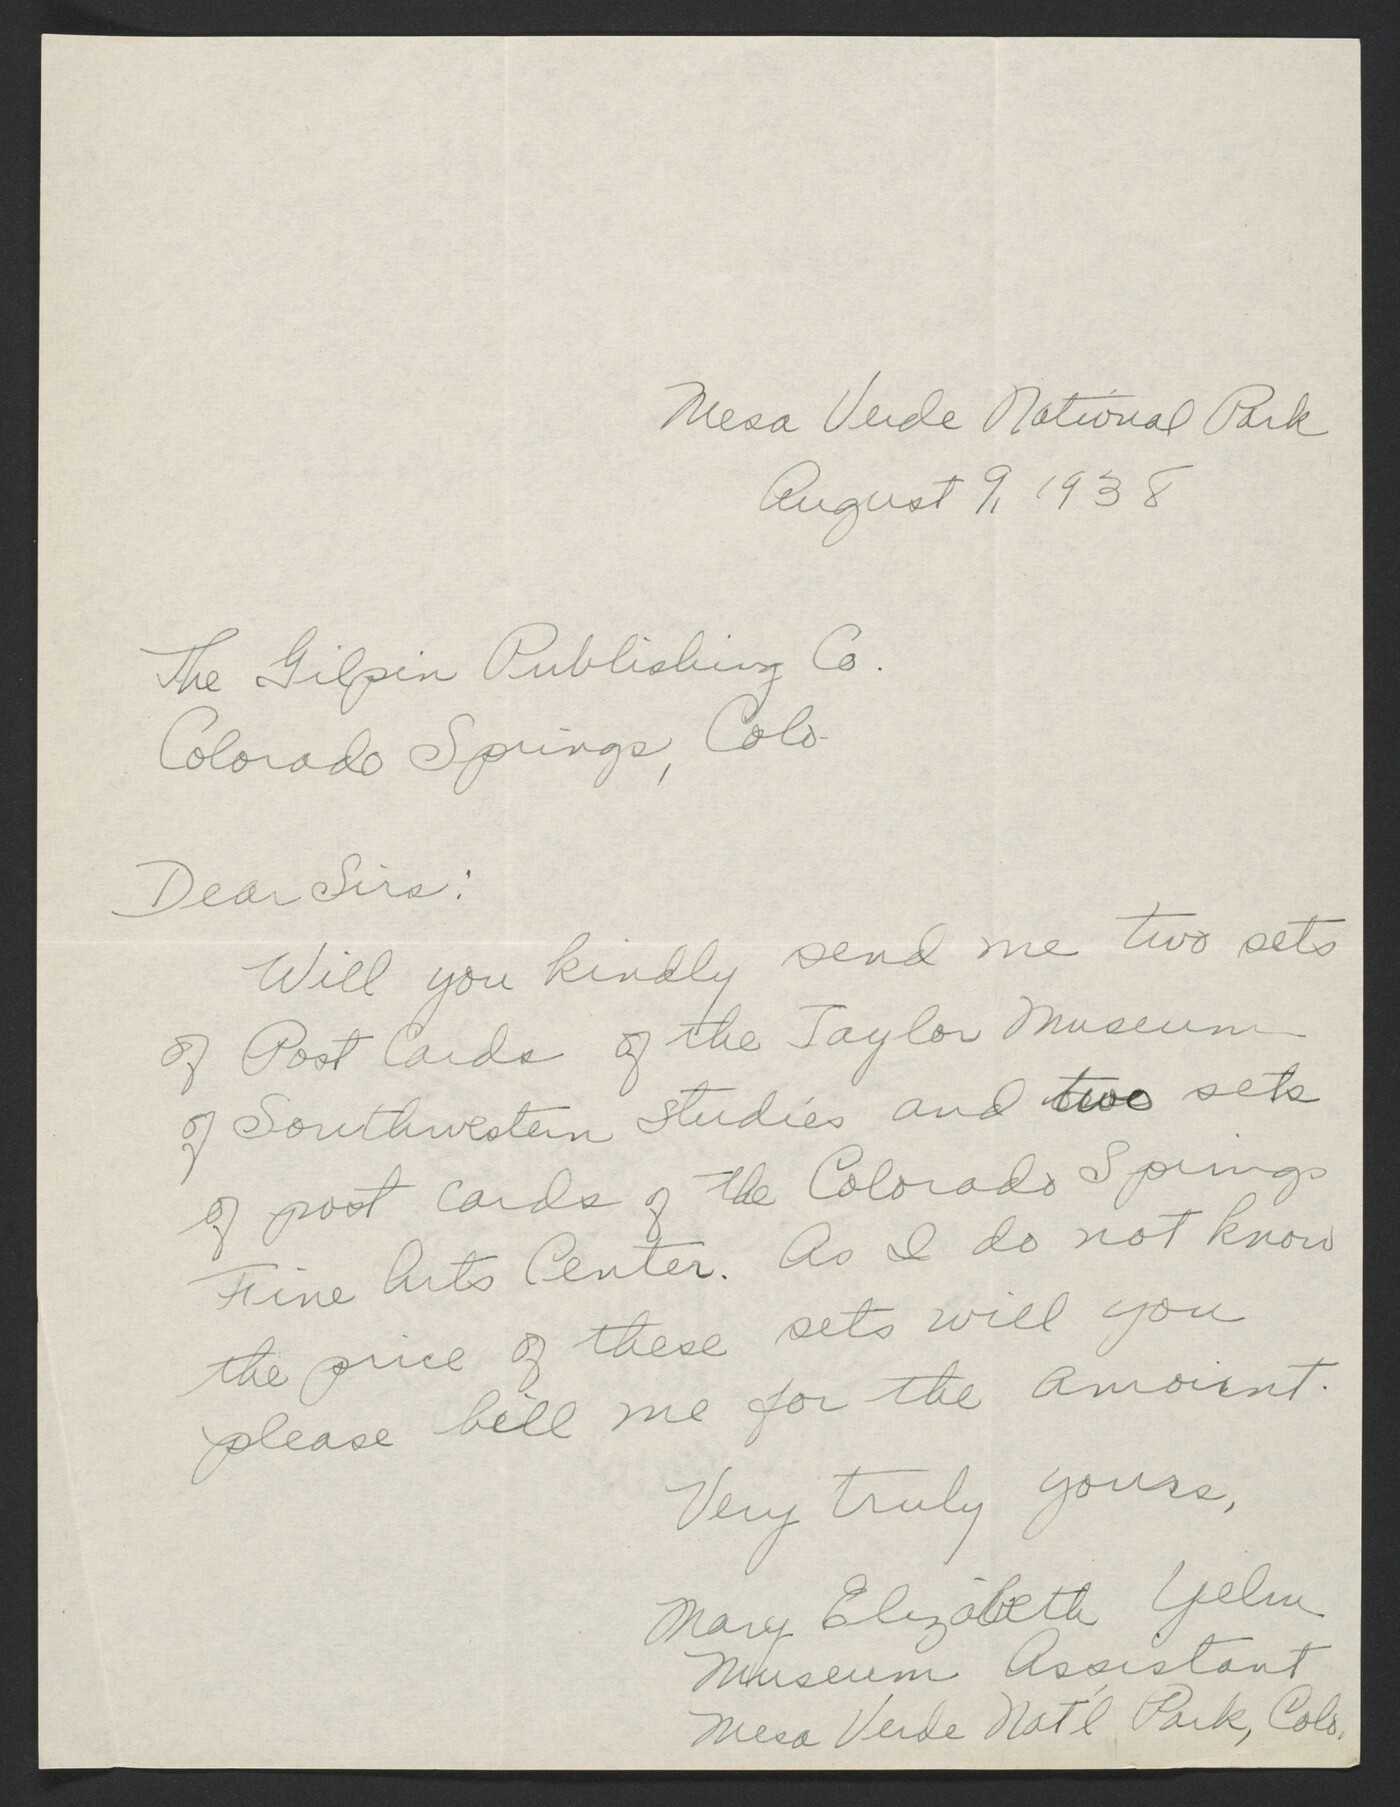 Mesa Verde National Park
August 9, 1938
The Gilpin Publishing Co.
Colorado Springs, Colo.
Dear Sirs:
Will you kindly send me two sets
of Post Cards of the Taylor Museum
of Southwestern Studies and two sets
of post cards of the Colorado Springs
Fine Arts Center. As I do not know
the price of these sets will you
please bill me for the amount.
Very truly yours,
Mary Elizabeth Yelm
Museum Assistant
Mesa Verde Nat'l Park, Colo.